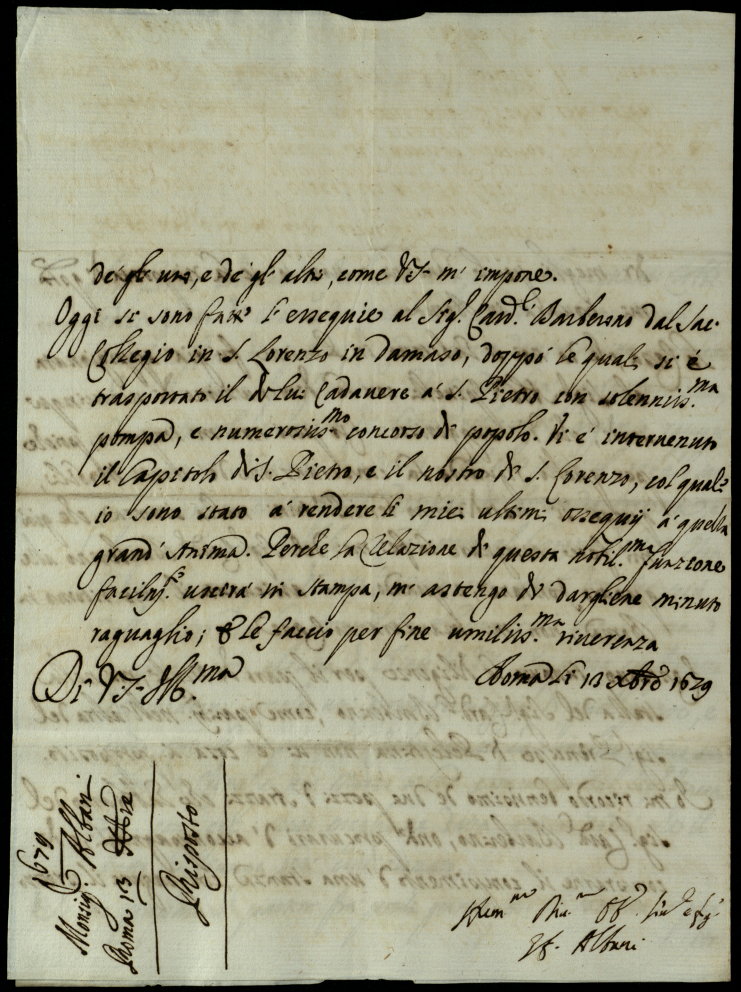 de' gl' uni, e de' gl' altri, come V.S. m' impone.
Oggi si sono fatte l' essequie al Sig.r Card.le Barberino dal Sac.
Collegio in S. Lorenzo in Damaso, doppo le quali si è
trasportato il di lui Cadavere à S. Pietro con solenniss.ma
pompa, e numerosiss.mo concorso di popolo. Vi è intervenuto
il Capitolo di S. Pietro, e il nostro di S. Lorenzo, col quale
io sono stato à rendere li miei ultimi ossequij à quella
grand' Anima. Perche la Relazione di questa nobil.ma funzione
facilm.te uscirà in stampa, m' astengo di dargliene minuto
raguaglio; & le faccio per fine umiliss.ma riverenza
Di V.S. Ill.ma
Roma li 13 Xbre 1679
Um.mo
Albani
1679
Monsig.r Albani
Roma 13 Xbre
Risposto